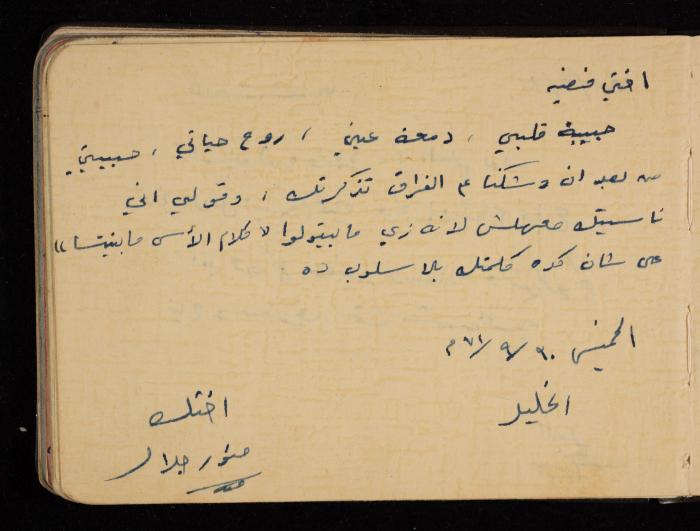 اختي فضيه
حبيبة قلبي ، دمعة عيني ، روح حياتي ، حبيبتي
من بعد ان وشكنا ع الفراق تذكرتك ، وقولي اني
ناسيتك معهلش لانه زي ما بيقولوا « كلام الأسى ما بينتسا »
على شان كده كلمتك بالاسلوب ده
الخميس ٣٠ / ٩ / ٧١ م
الخليل
اختك
جلال